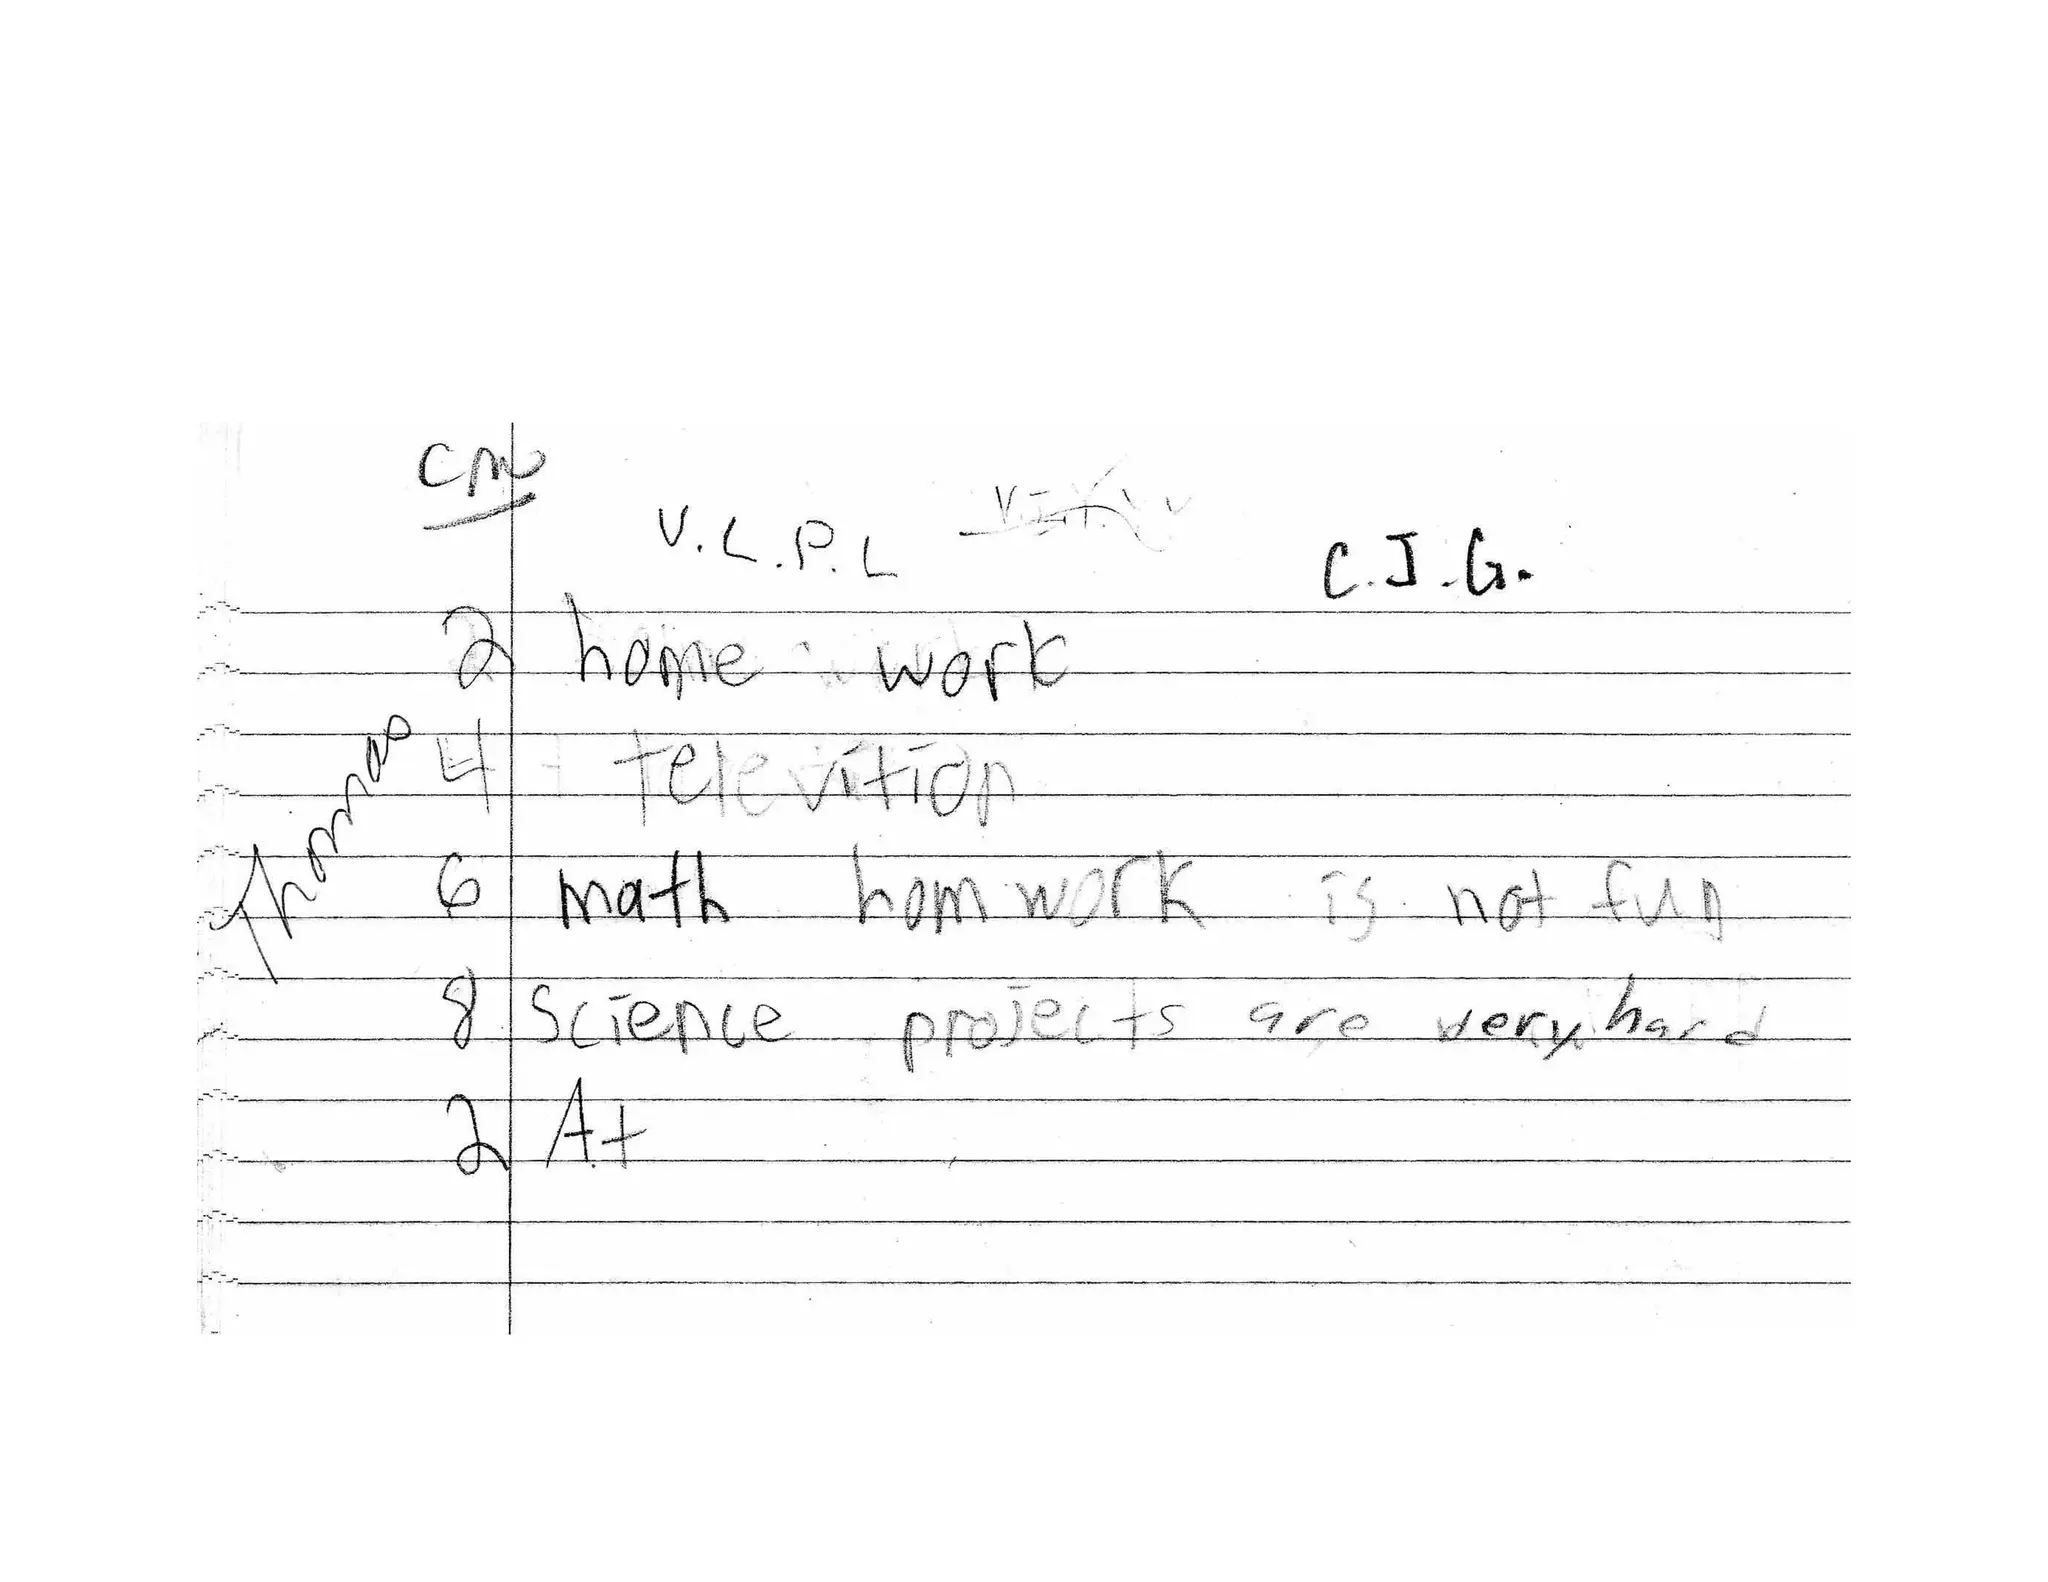 cm
V.L.P.L
C.J.G.
2 home work
Thomas
4 televition
6 math homwork is not fun
8 Science projects are very hard
2 A+